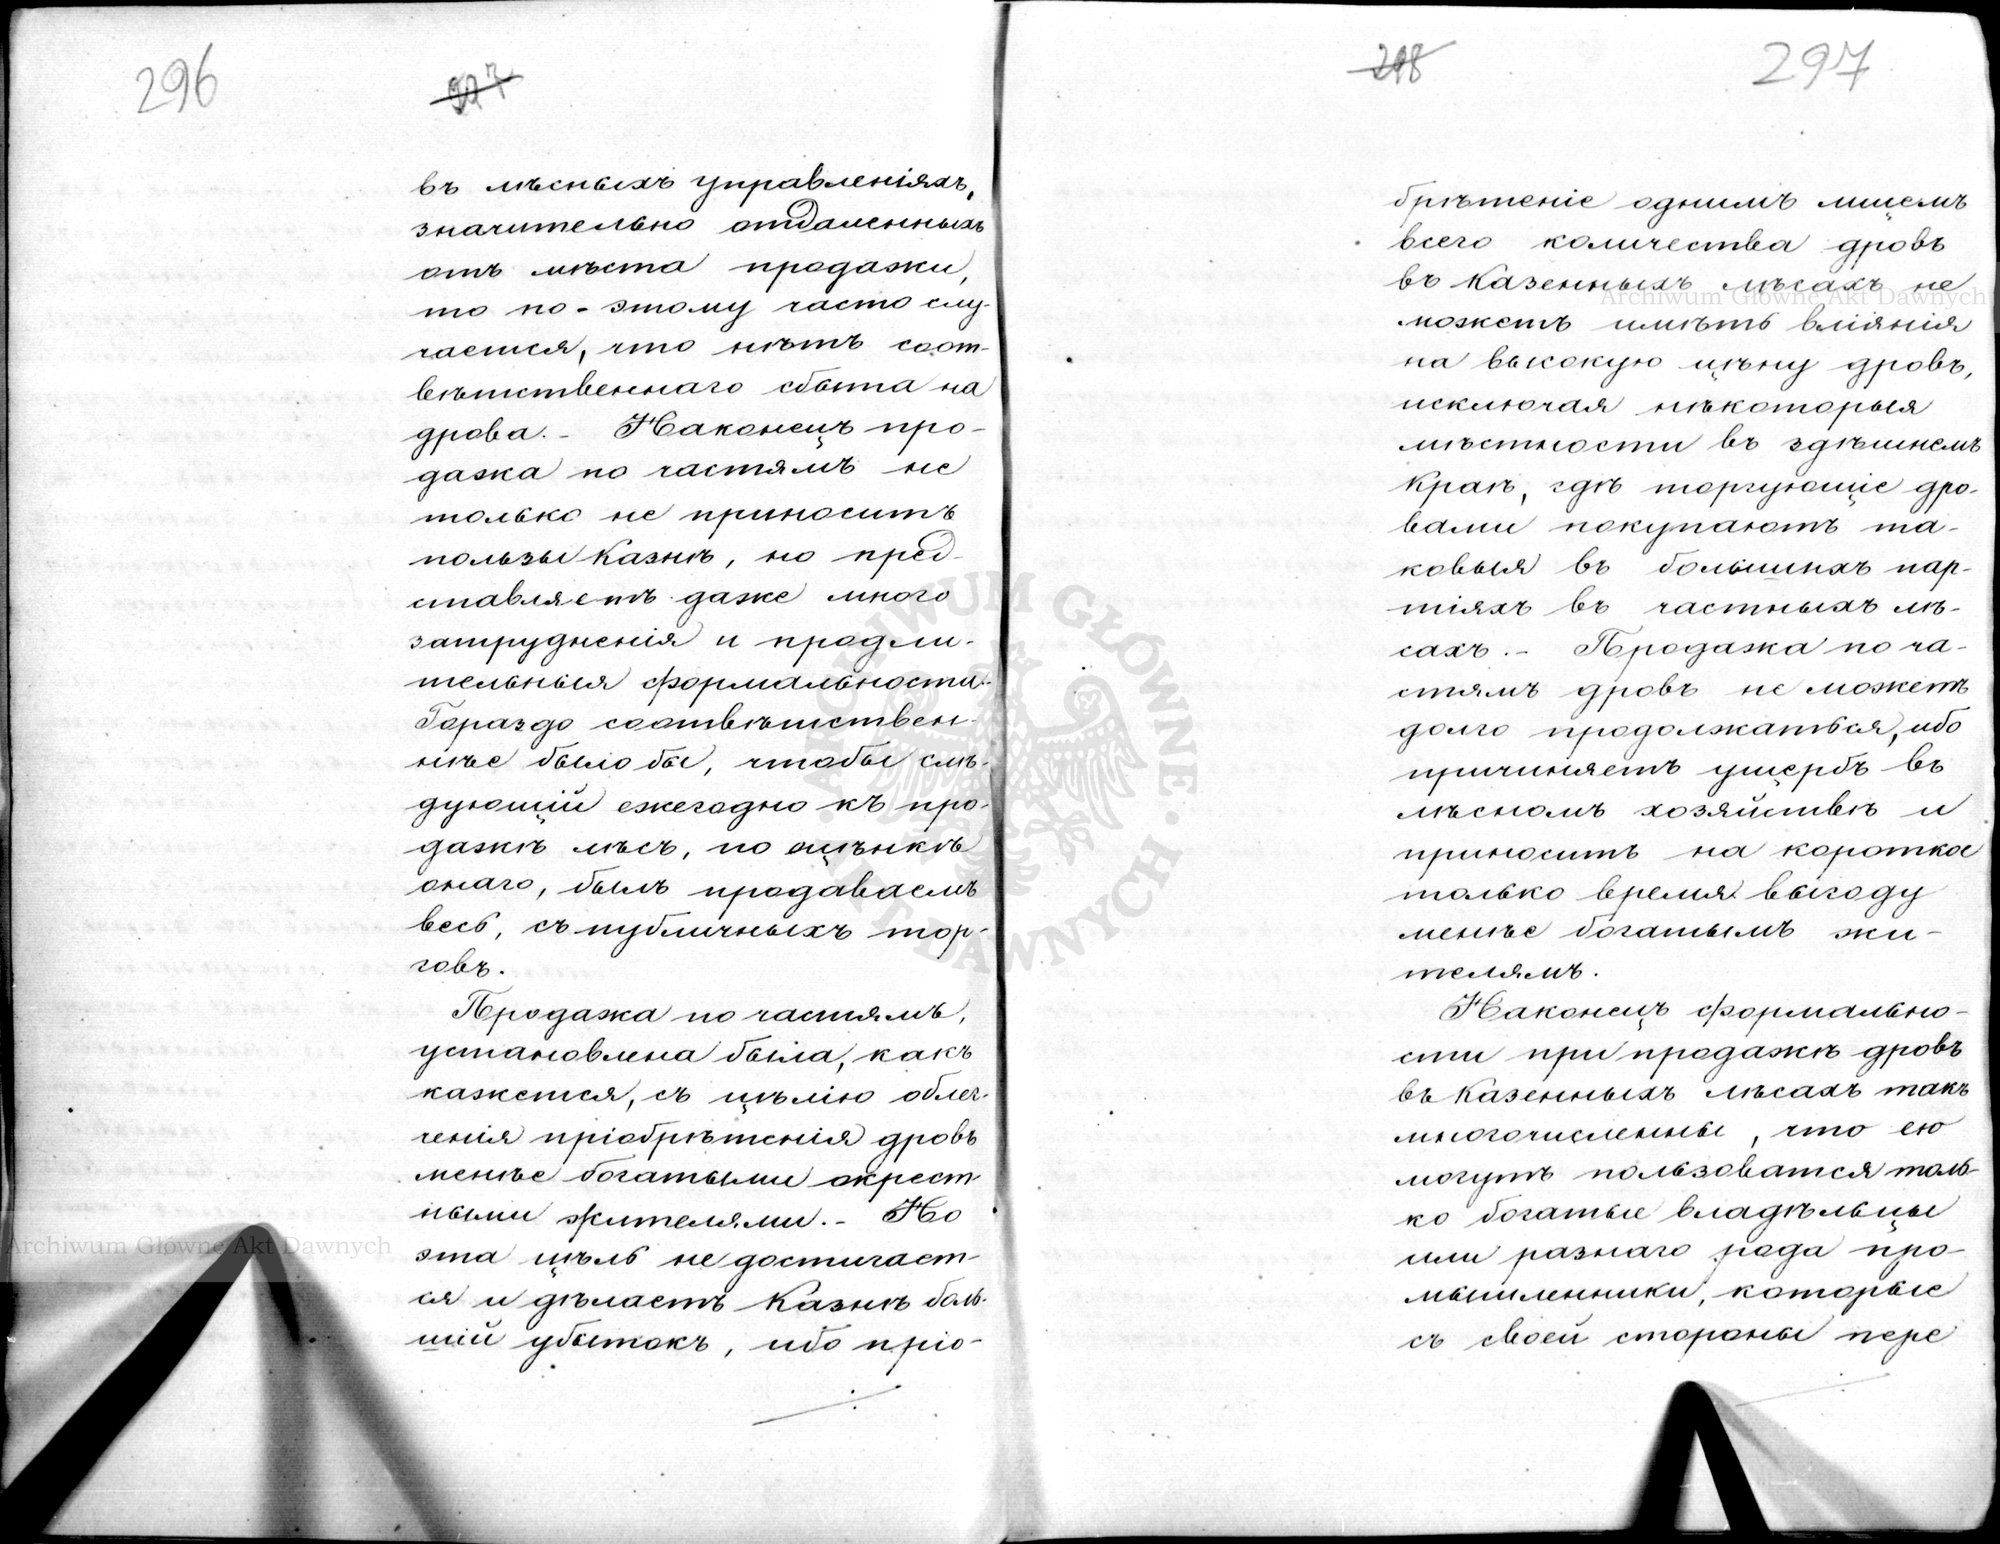 296
въ лѣсныхъ управленіяхъ,
значительно отдаленныхъ
отъ мѣста продажи,
то по-этому часто слу-
чается, что нѣтъ соот-
вѣтственнаго сбыта на
дрова. - Наконецъ про-
дажа по частямъ не
только не приноситъ
пользы Казнѣ, но пред-
ставляетъ даже много
затрудненія и продли-
тельныя формальности.
Гораздо соотвѣтствен-
нѣе было бы, чтобы слѣ-
дующій ежегодно къ про-
дажѣ лѣсъ, по оцѣнкѣ
онаго, былъ продаваемъ
весь, съ публичныхъ тор-
говъ.
Продажа по частямъ,
установлена была, какъ
кажется, съ цѣлію облег-
ченія пріобрѣтенія дровъ
менѣе богатыми окрест-
ными жителями. - Но
эта цѣль не достигает-
ся и дѣлаетъ Казнѣ боль-
шій убытокъ, ибо пріо-
298
297
брѣтеніе однимъ лицемъ
всего количества дровъ
въ Казенныхъ лѣсахъ не
можетъ имѣть вліянія
на высокую цѣну дровъ,
исключая нѣкоторыя
мѣстности въ здѣшнемъ
Краѣ, гдѣ торгующіе дро-
вами покупаютъ та-
ковыя въ большихъ пар-
тіяхъ въ частныхъ лѣ-
сахъ. - Продажа по ча-
стямъ дровъ не можетъ
долго продолжаться, ибо
причиняетъ ущербъ въ
лѣсномъ хозяйствѣ и
приноситъ на короткое
только время выгоду
менѣе богатымъ жи-
телямъ.
Наконецъ формально-
сти при продажѣ дровъ
въ Казенныхъ лѣсахъ такъ
многочисленны, что ею
могутъ пользоватся толь-
ко богатые владѣльцы
или разнаго рода про-
мышленники, которые
съ своей стороны пере
Archiwum Główne Akt Dawnych
Archiwum Główne Akt Dawnych
ARCHIWUM GŁÓWNE · AKT DAWNYCH ·